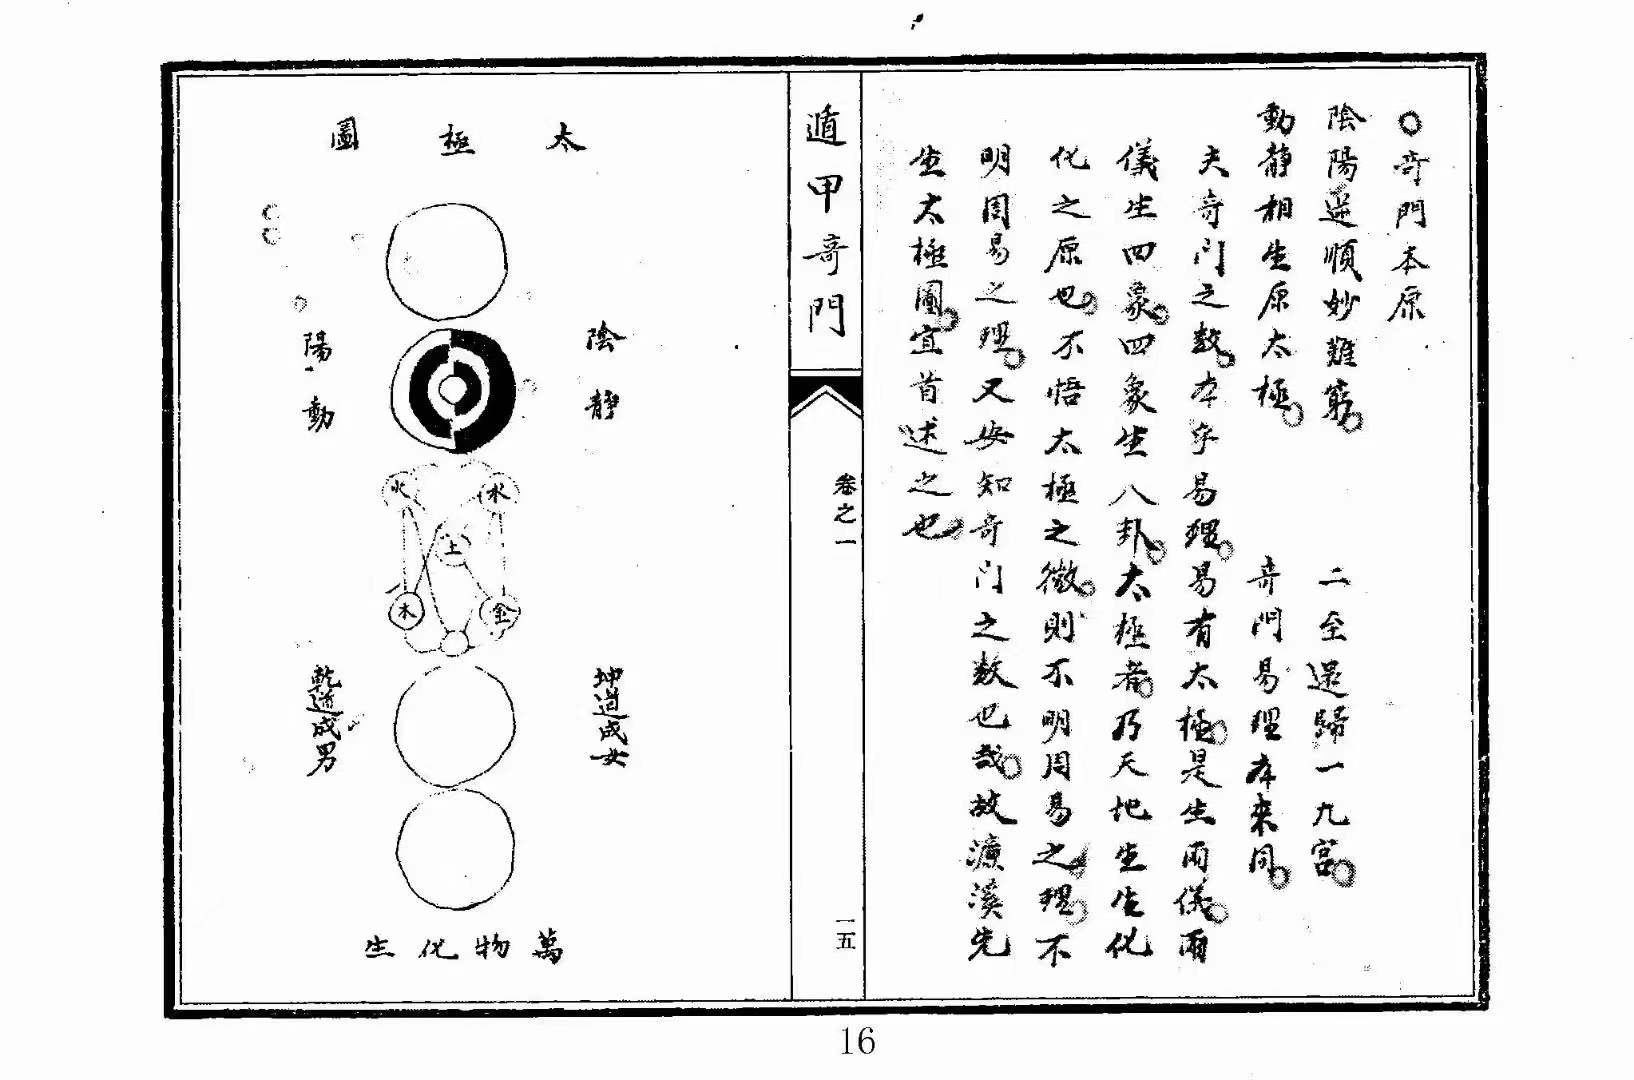 ○奇門本原
陰陽逆順妙難窮　二至還歸一九宮
動靜相生原太極　奇門易理本來同
夫奇门之数本乎易理易有太極是生兩儀兩
儀生四象四象生八卦太極者乃天地生生化
化之原也不悟太極之微則不明周易之理不
明周易之理又安知奇门之数也哉故濂溪先
生太極圖宜首述之也
遁甲奇門
卷之一
一五
太極圖
陰靜
陽動
火
水
土
木
金
坤道成女
乾道成男
萬物化生
16